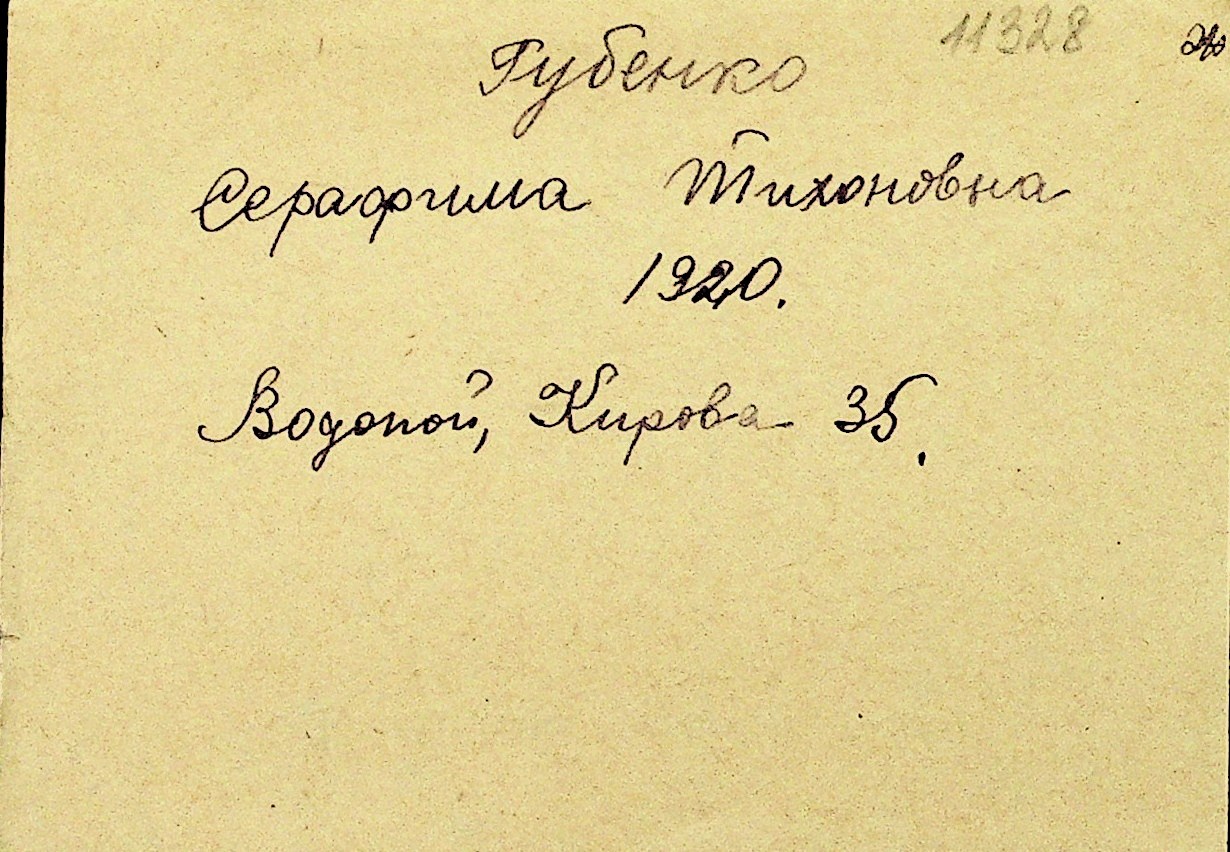 11328
Губенко
Серафима Тихоновна
1920.
Водопой, Кирова 35.